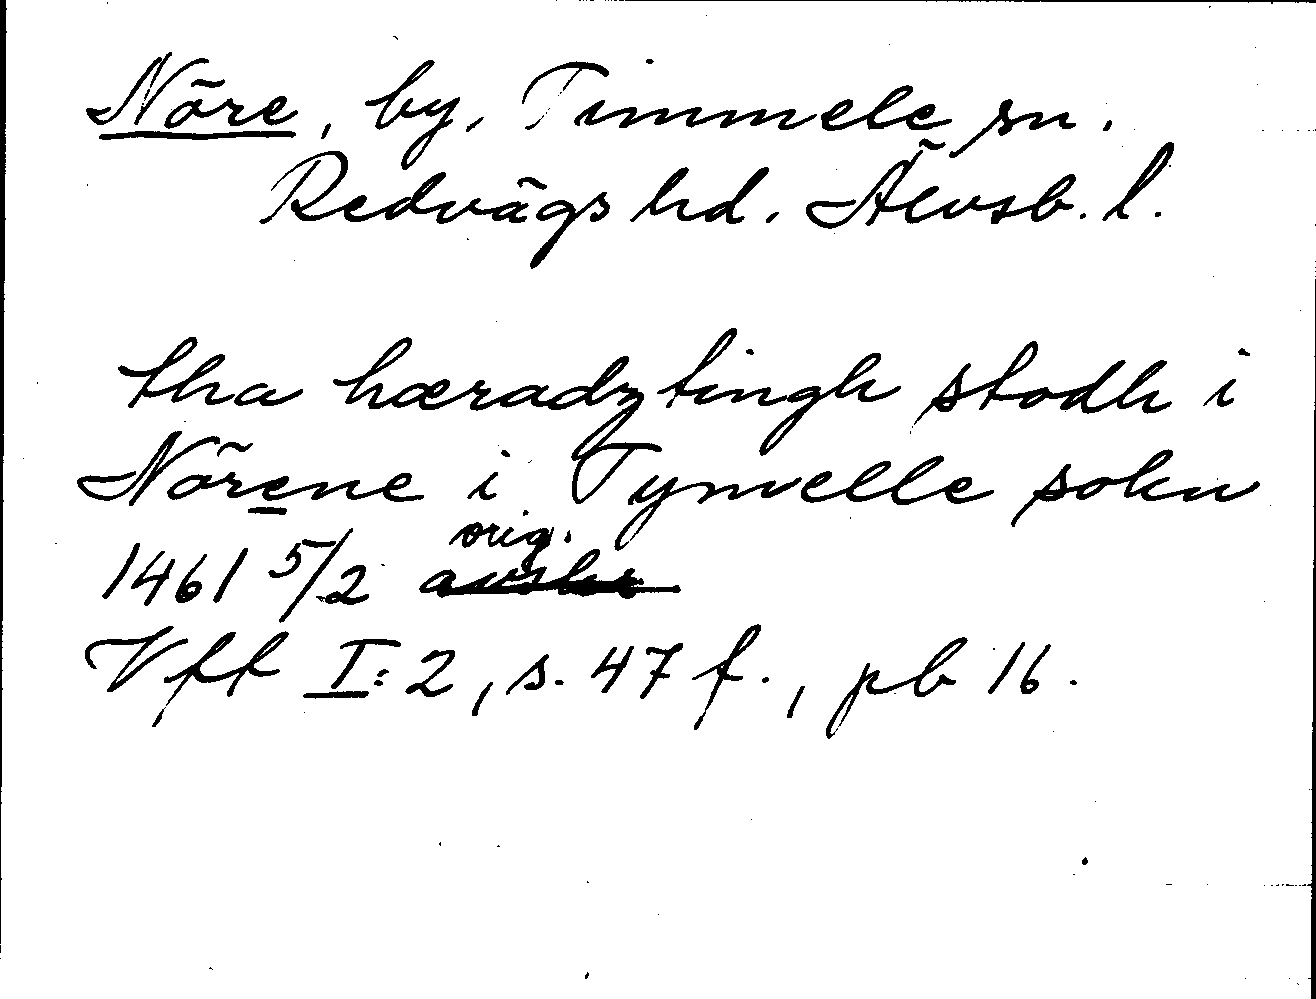 Nöre, by, Timmele sn.
Redvägs hd. Älvsb. l.
tha hæradztingh stodh i
Nörene i Tymelle sokn
orig.
1461 5/2 avskr
Vff I:2, s. 47 f., pb 16.